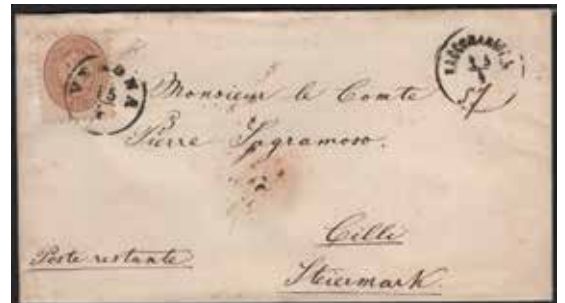 VERONA
15
Monsieur le Comte
Pierre Sagramoso.
Cilli
Steiermark.
Poste restante